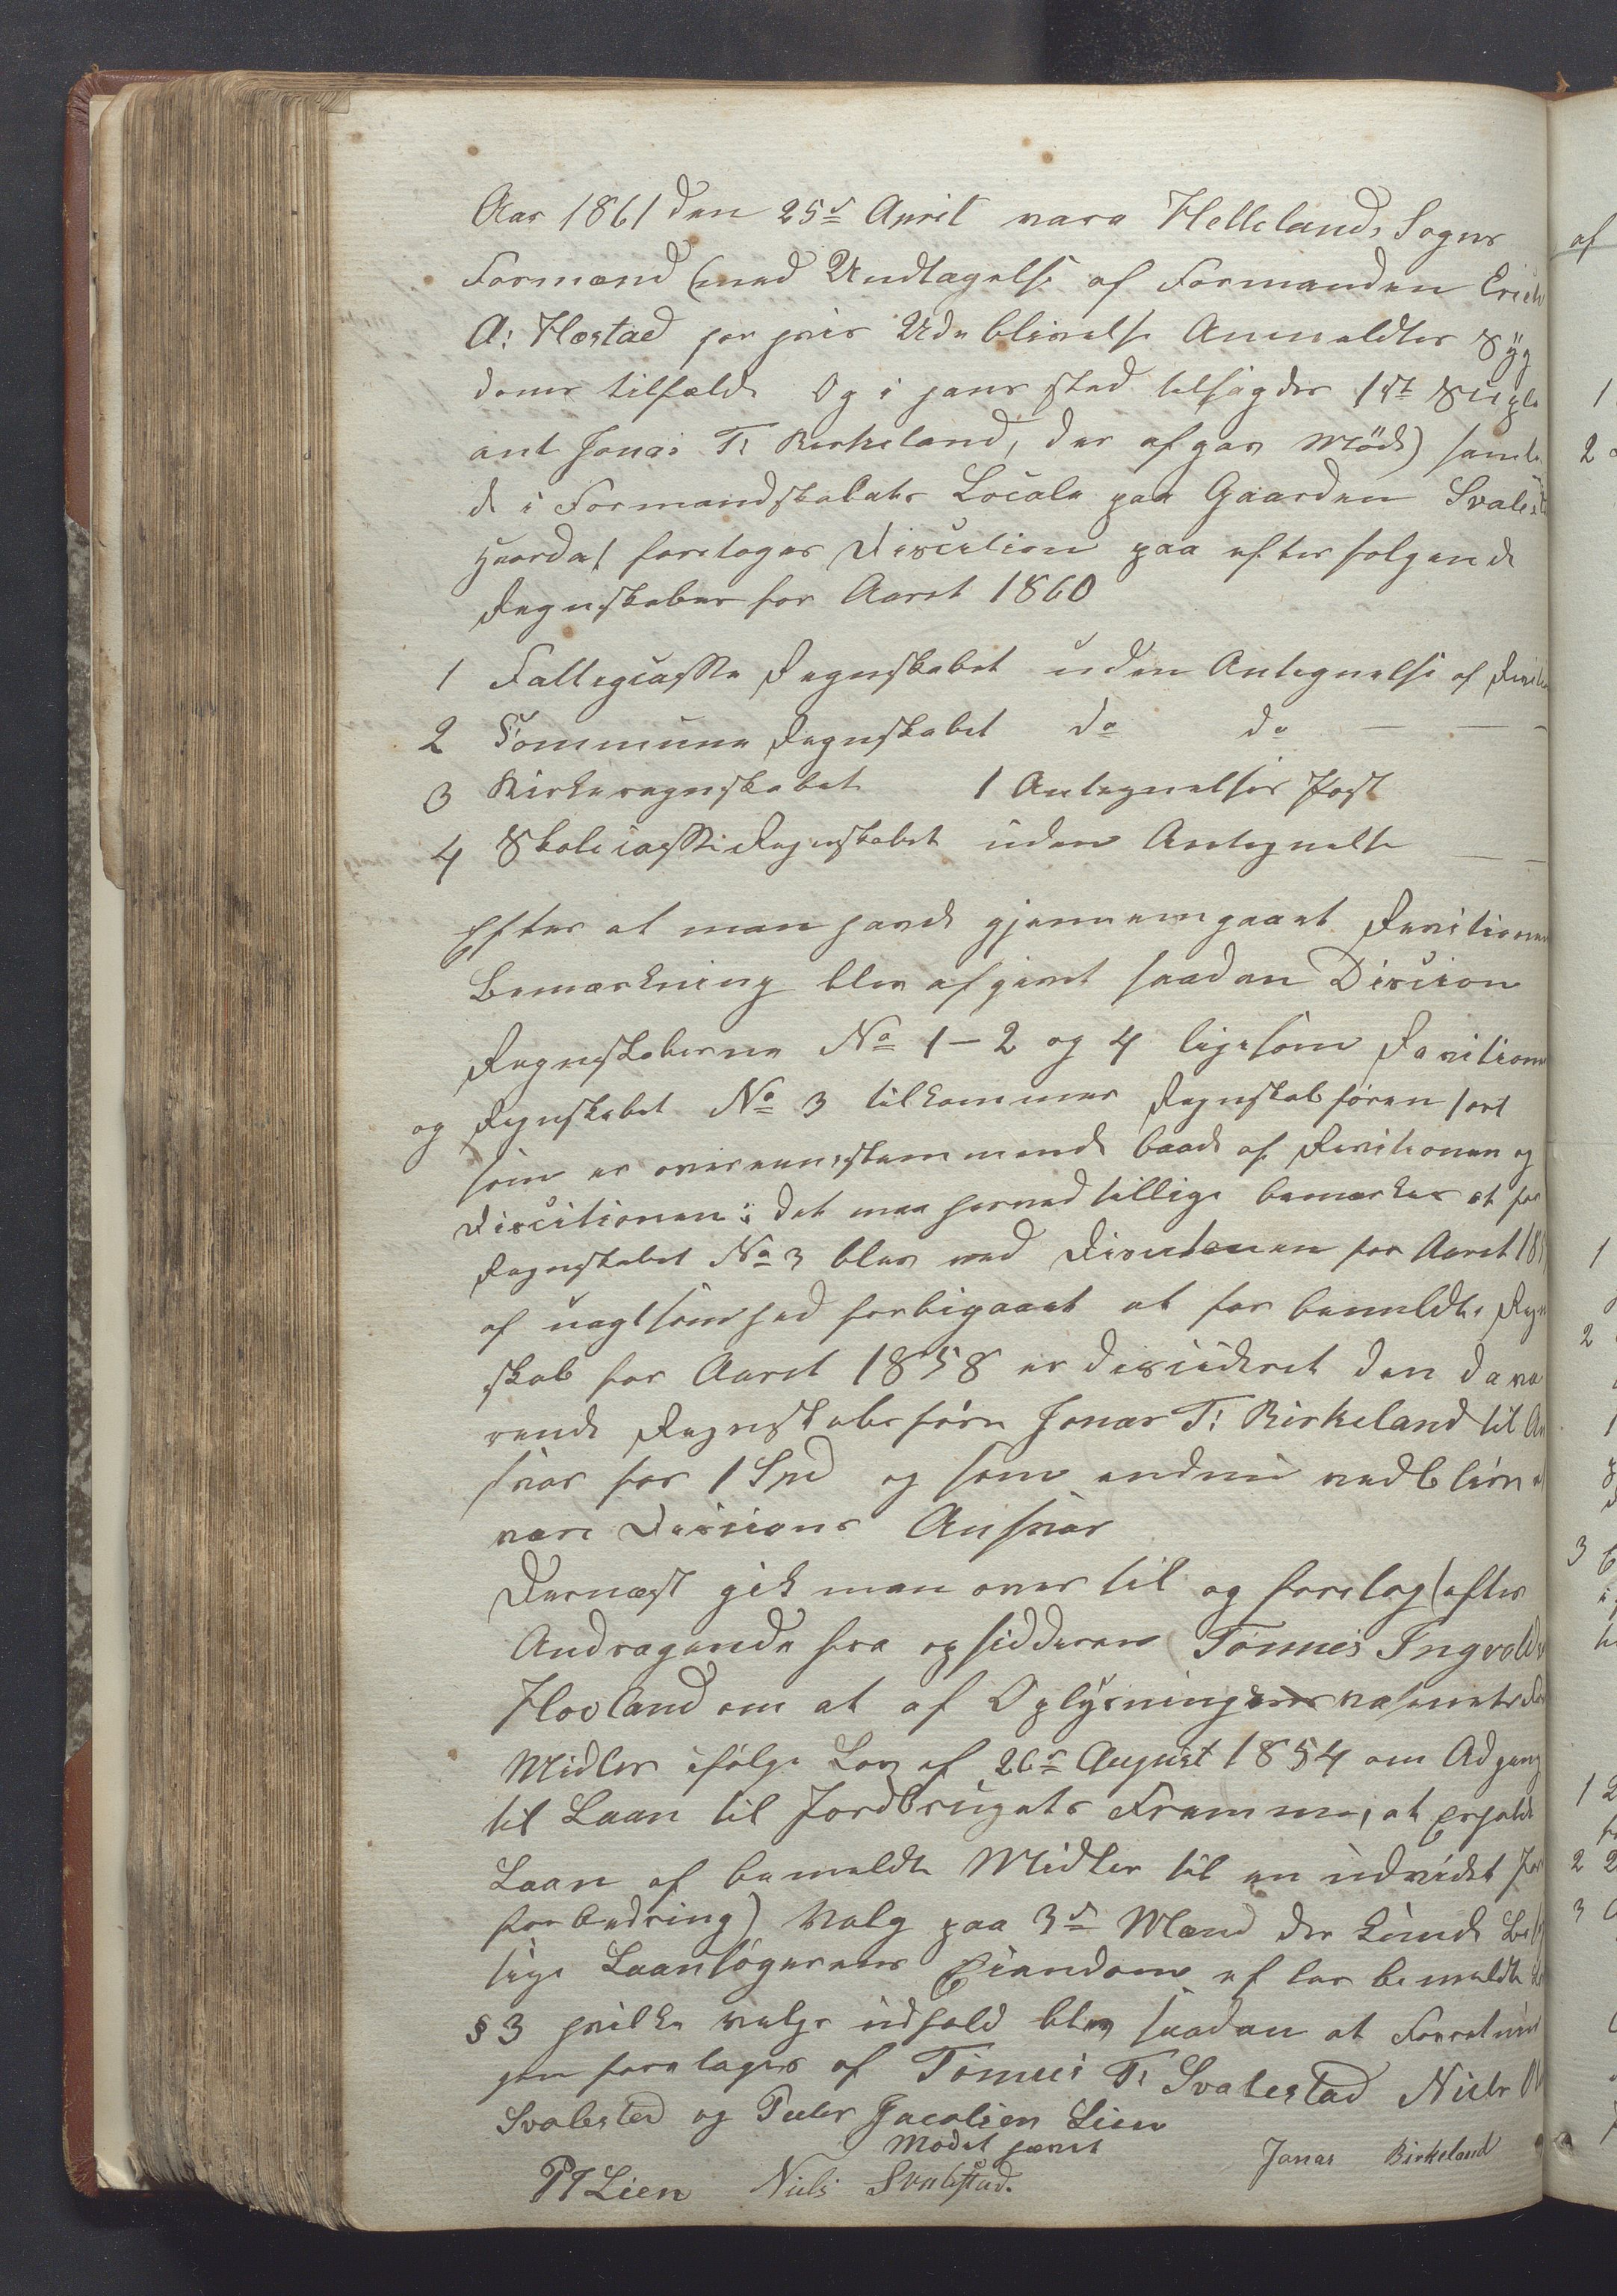 Aar 1861 den 25d April vare Hellelands Sogns
Formænd (med Undtagelse af Formanden Erich
A: Hæstad for hvis Udeblivelse Anmeldtes Syg
doms tilfælde Og i hans sted tilsagdes 1st Suple
ant Jonas T: Birkeland, der afgav Møde) samle
de i Formandskabets Locale paa Gaarden Svalest
hvorda foretoges Discution paa efterfølgende
Regnskaber for Aaret 1860
1 Fattigcasse Regnskabet uden Antegnelse af
2 Commune Regnskabet do do — — —
3 Kirkeregnskabet 1 Antegnelses Post
4 Skolecasse Regnskabet uden Antegnelse — —
Efter at man havde gjennemgaaet Revitionens
Bemærkning blev afgivet saadan Dision
Regnskaberne No 1 – 2 og 4 ligesom Revitionen
og Regnskabet No 3 tilkommer Regnskabsføren
som er overeensstemmende baade af Revitionen og
Discutionen; Det maa herved tillige bemærkes at for
Regnskabet No 3 blev ved Discutionen for Aaret 18
af uagtsomhed forbigaaet at for bemeldte Regn
skab for Aaret 1858 er desideret den dava
rende Regnskabsføre Jonas T: Birkeland til An
svar for 1 Spd og som endnu vedbliver
være Desisions Ansvar
Dernæst gik man over til og foretog (efter
Andragende fra opsidderen Tønnes Ingvolds
Hovland om at af Oplysningsvæsenets
Midler ifølge Lov af 26d August 1854 om Adgang
til Laan til Jordbrugets Fremme, at erholde
Laan af bemeldte Midler til en udvidet Jor
forbedring) Valg paa 3d Mænd der kunde Be
sige Laansøgerens Eiendom efter bemeldte
§ 3 hvilke valgs udfald blev saadan at Forretnin
gen foretages af Tønnes T: Svalestad Niels
Svalestad og Peder Jacobsen Lien
Mødet hævet
PJ Lien Niels Svalestad. Jonas Birkeland